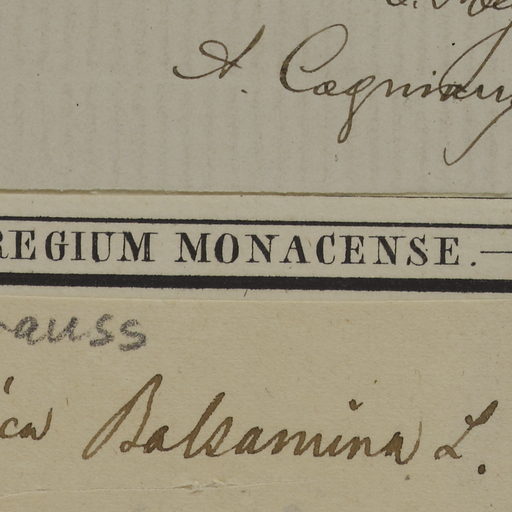 A. Cogniaux
REGIUM MONACENSE.—
rauss
ica Balsamina L.